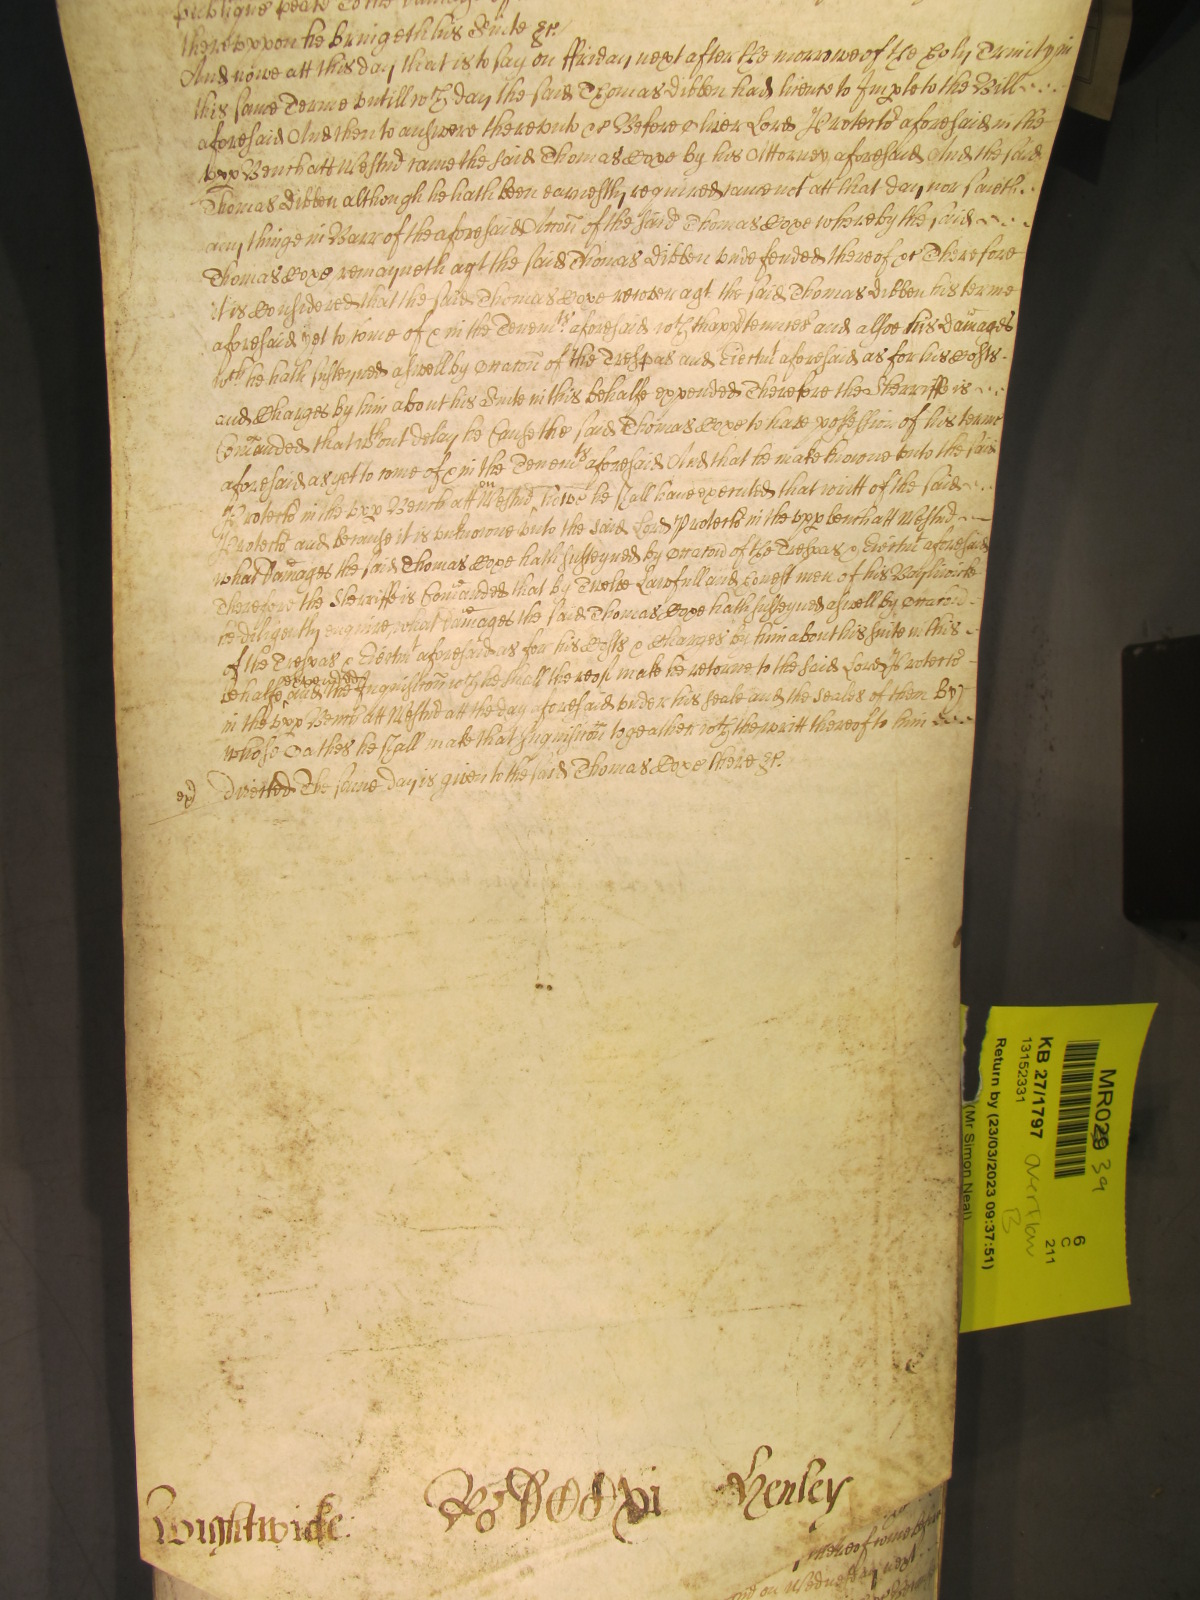 publique peace To the damage of
thereuppon he bringeth his Suite &c.
And nowe att this day that is to say on ffriday next after the morrowe of the holy Trinity in
this same Terme untill wch day the said Thomas Dibben had licence to Imple to the Bill
aforesaid And then to answere thereunto &c Before Oliver Lord Protectr aforesaid in the
upp Bench att Westmr came the said Thomas Cope by his Attorney aforesaid And the said
Thomas Dibben although he hath been earnestly required came not att that day nor saieth
any thinge in Barr of the aforesaid Accon of the said Thomas Cope whereby the said
Thomas Cope remayneth agt the said Thomas Dibben undefended thereof &c Therefore
it is Considered that the said Thomas Cope recover agt the said Thomas Dibben his terme
aforesaid yet to come of & in the Tenemts aforesaid wth thappurtences and alsoe his Damages
wch he hath susteyned aswell by occacon of the Trespas and Eiectmt aforesaid as for his Costs
and Charges by him about his Suite in this behalfe expended Therefore the Sherriffe is
Comanded that wthout delay he Cause the said Thomas Cope to have possession of his terme
aforesaid as yet to come of & in the Tenemts aforesaid And that he make knowne unto the said
Ld Protectr in the upp Bench att Westmr on howe he shall have executed that writt of the said
Ld Protectr and because it is unknowne unto the said Lord Protectr in the upp bench att Westmr
what Damages the said Thomas Cope hath susteyned by occacon of the Trespas & Eiectmt aforesaid
Therefore the Sherriffe is Comanded that by Twelve Lawfull and honest men of his Bayliwicke
he diligently enquire what Damages the said Thomas Cope hath susteyned aswell by occacon
of the Trespas & Eiectmt aforesaid as for his Costs & Charges by him about his suite in this
behalfe expended and the Inquisicon wch he shall thereof make he retourne to the said Lord Protectr
in the upp Bench att Westmr att the day aforesaid under his seale and the seales of them By
whose Oathes he shall make that Inquisicon togeather wth the writt thereof to him
directed The same day is given to the said Thomas Cope there &c.
Wightwicke
Henley
thereof
and on Wednesday next
MR029 39
KB 27/1797
13152331
Return by (23/03/2023 09:37:51)
(Mr Simon Neal)
6
C
211
overflow
B